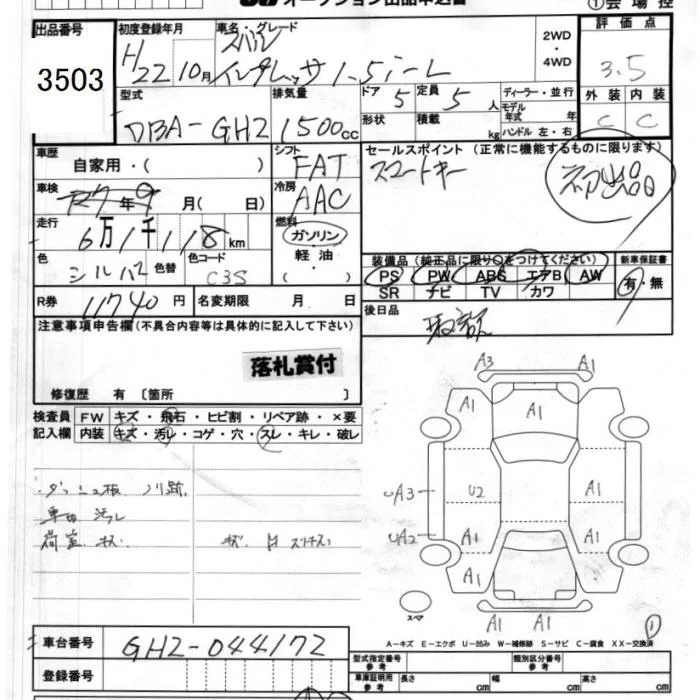 オークション出品申込書 ①会場控
出品番号 初度登録年月 車名・グレード 2WD・4WD 評価点
3503 H22 10月 スバル インプレッサ 1.5i-L 3.5
型式 排気量 ドア 5 定員 5人 ディーラー・並行 外装 内装
DBA-GH2 1500cc 形状 積載 kg モデル年式 年 ハンドル 左・右 C C
車歴 自家用・( ) シフト FAT セールスポイント (正常に機能するものに限ります)
冷房 AAC スマートキー 初出品
車検 年9月( 日)
走行 6万1千118km 燃料 ガソリン・軽油・( )
色 シルバー 色替 色コード C3S
装備品 (純正品に限り○をつけてください) 新車保証書
PS PW ABS エアB AW 有・無
SR ナビ TV カワ
R券 11740円 名変期限 月 日
後日品 取説
注意事項申告欄(不具合内容等は具体的に記入して下さい)
落札賞付
修復歴 有 〔箇所 〕
検査員 FW キズ・飛石・ヒビ割・リペア跡・×要
記入欄 内装 キズ・汚レ・コゲ・穴・スレ・キレ・破レ
ダッシュ板 ノリ跡
車内 汚レ
荷室 キズ
A3 A1
A1 A1
UA3 U2 A1
UA2 A1 A1
A1 A1
A1 A1
スペア ①
A-キズ E-エクボ U-凹み W-補修跡 S-サビ C-腐食 XX-交換済
車台番号 GH2-044172
型式指定番号 参考 類別区分番号 参考
登録番号 車庫証明用 参考 長さ cm 幅 cm 高さ cm